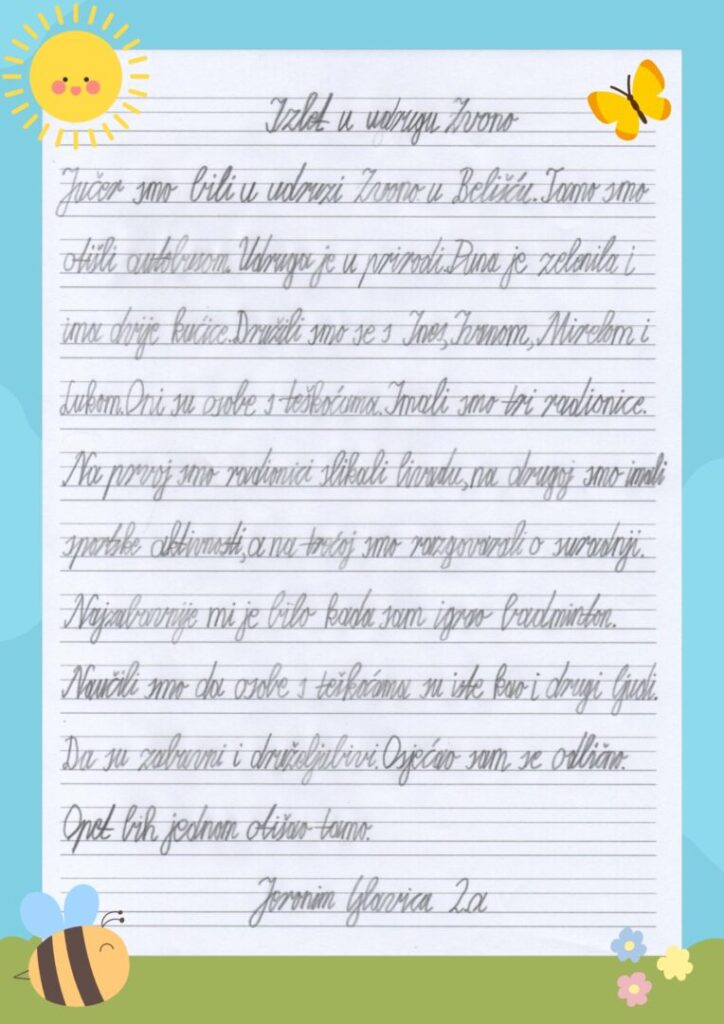 Izlet u udrugu Zvono
Jučer smo bili u udruzi Zvono u Belišću. Tamo smo
otišli autobusom. Udruga je u prirodi. Puna je zelenila i
ima dvije kućice. Družili smo se s Ines, Ivanom, Mirelom i
Lukom. Oni su osobe s teškoćama. Imali smo tri radionice.
Na prvoj smo radionici slikali livadu, na drugoj smo imali
sportske aktivnosti, a na trećoj smo razgovarali o suradnji.
Najzabavnije mi je bilo kada sam igrao badminton.
Naučili smo da osobe s teškoćama su iste kao i drugi ljudi.
Da su zabavni i druželjubivi. Osjećao sam se odlično.
Opet bih jednom otišao tamo.
Jeronim Glavica 2.a